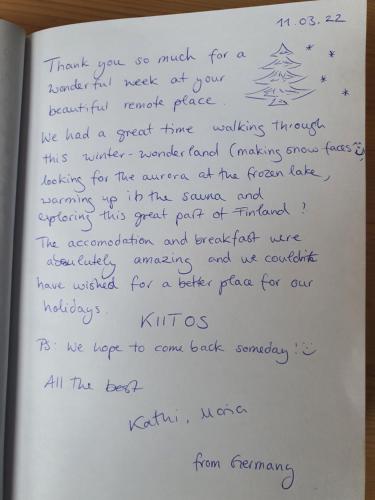 11.03.22
Thank you so much for a
wonderful week at your
beautiful remote place.
We had a great time walking through
this winter-wonderland (making snow faces☺),
looking for the aurora at the frozen lake,
warming up in the sauna and
exploring this great part of Finland!
The accomodation and breakfast were
absolutely amazing and we couldn't
have wished for a better place for our
holidays.
KIITOS
PS: We hope to come back someday! :)
All the best
Kathi,
from Germany